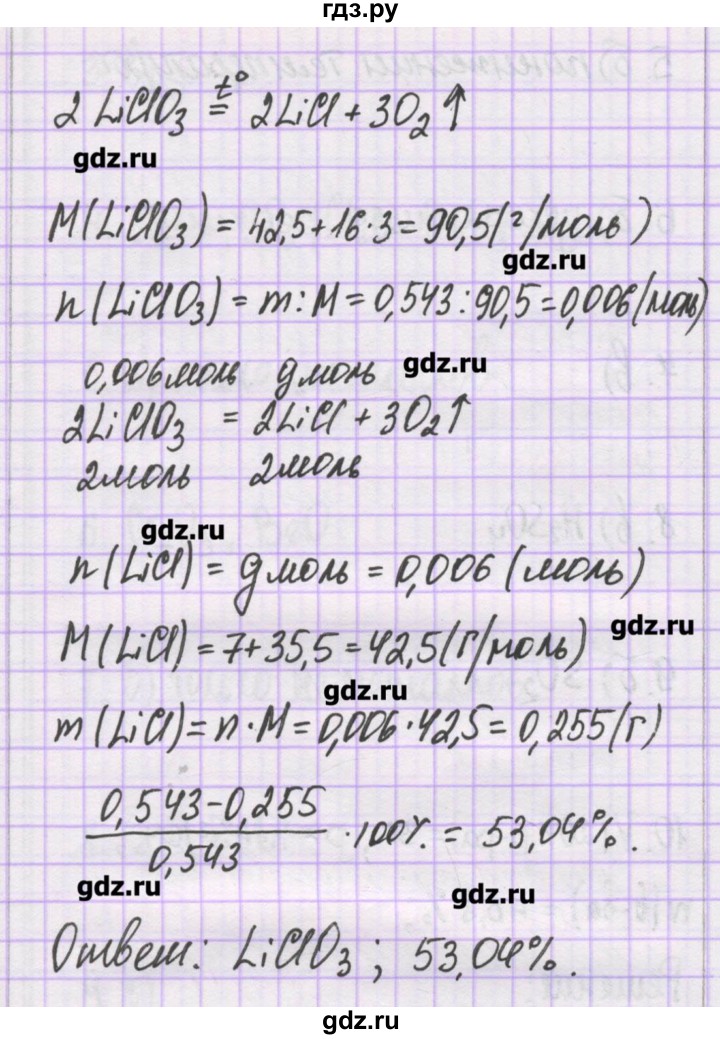 гдз.ру
2 LiClO3 t°= 2LiCl + 3O2↑
gdz.ru
M(LiClO3) = 42,5+16·3 = 90,5(г/моль)
gdz.ru
n(LiClO3) = m:M = 0,543:90,5 = 0,006(моль)
gdz.ru
0,006моль yмоль
2LiClO3 = 2LiCl + 3O2↑
2моль 2моль
gdz.ru
n(LiCl) = yмоль = 0,006 (моль)
gdz.ru
M(LiCl) = 7+35,5 = 42,5(г/моль)
gdz.ru
m(LiCl) = n·M = 0,006·42,5 = 0,255(г)
0,543-0,255
/0,543 ·100% = 53,04%.
gdz.ru
gdz.ru
Ответ: LiClO3; 53,04%.
gdz.ru